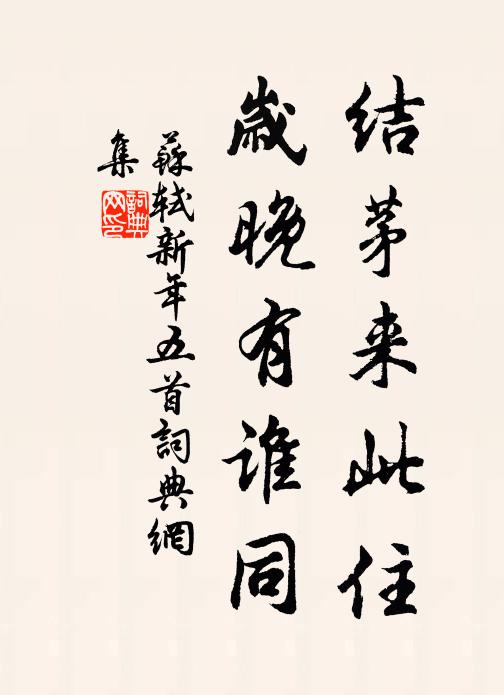 结茅来此住
岁晚有谁同
蘇轼新年五首詞典網
集
詞典网印